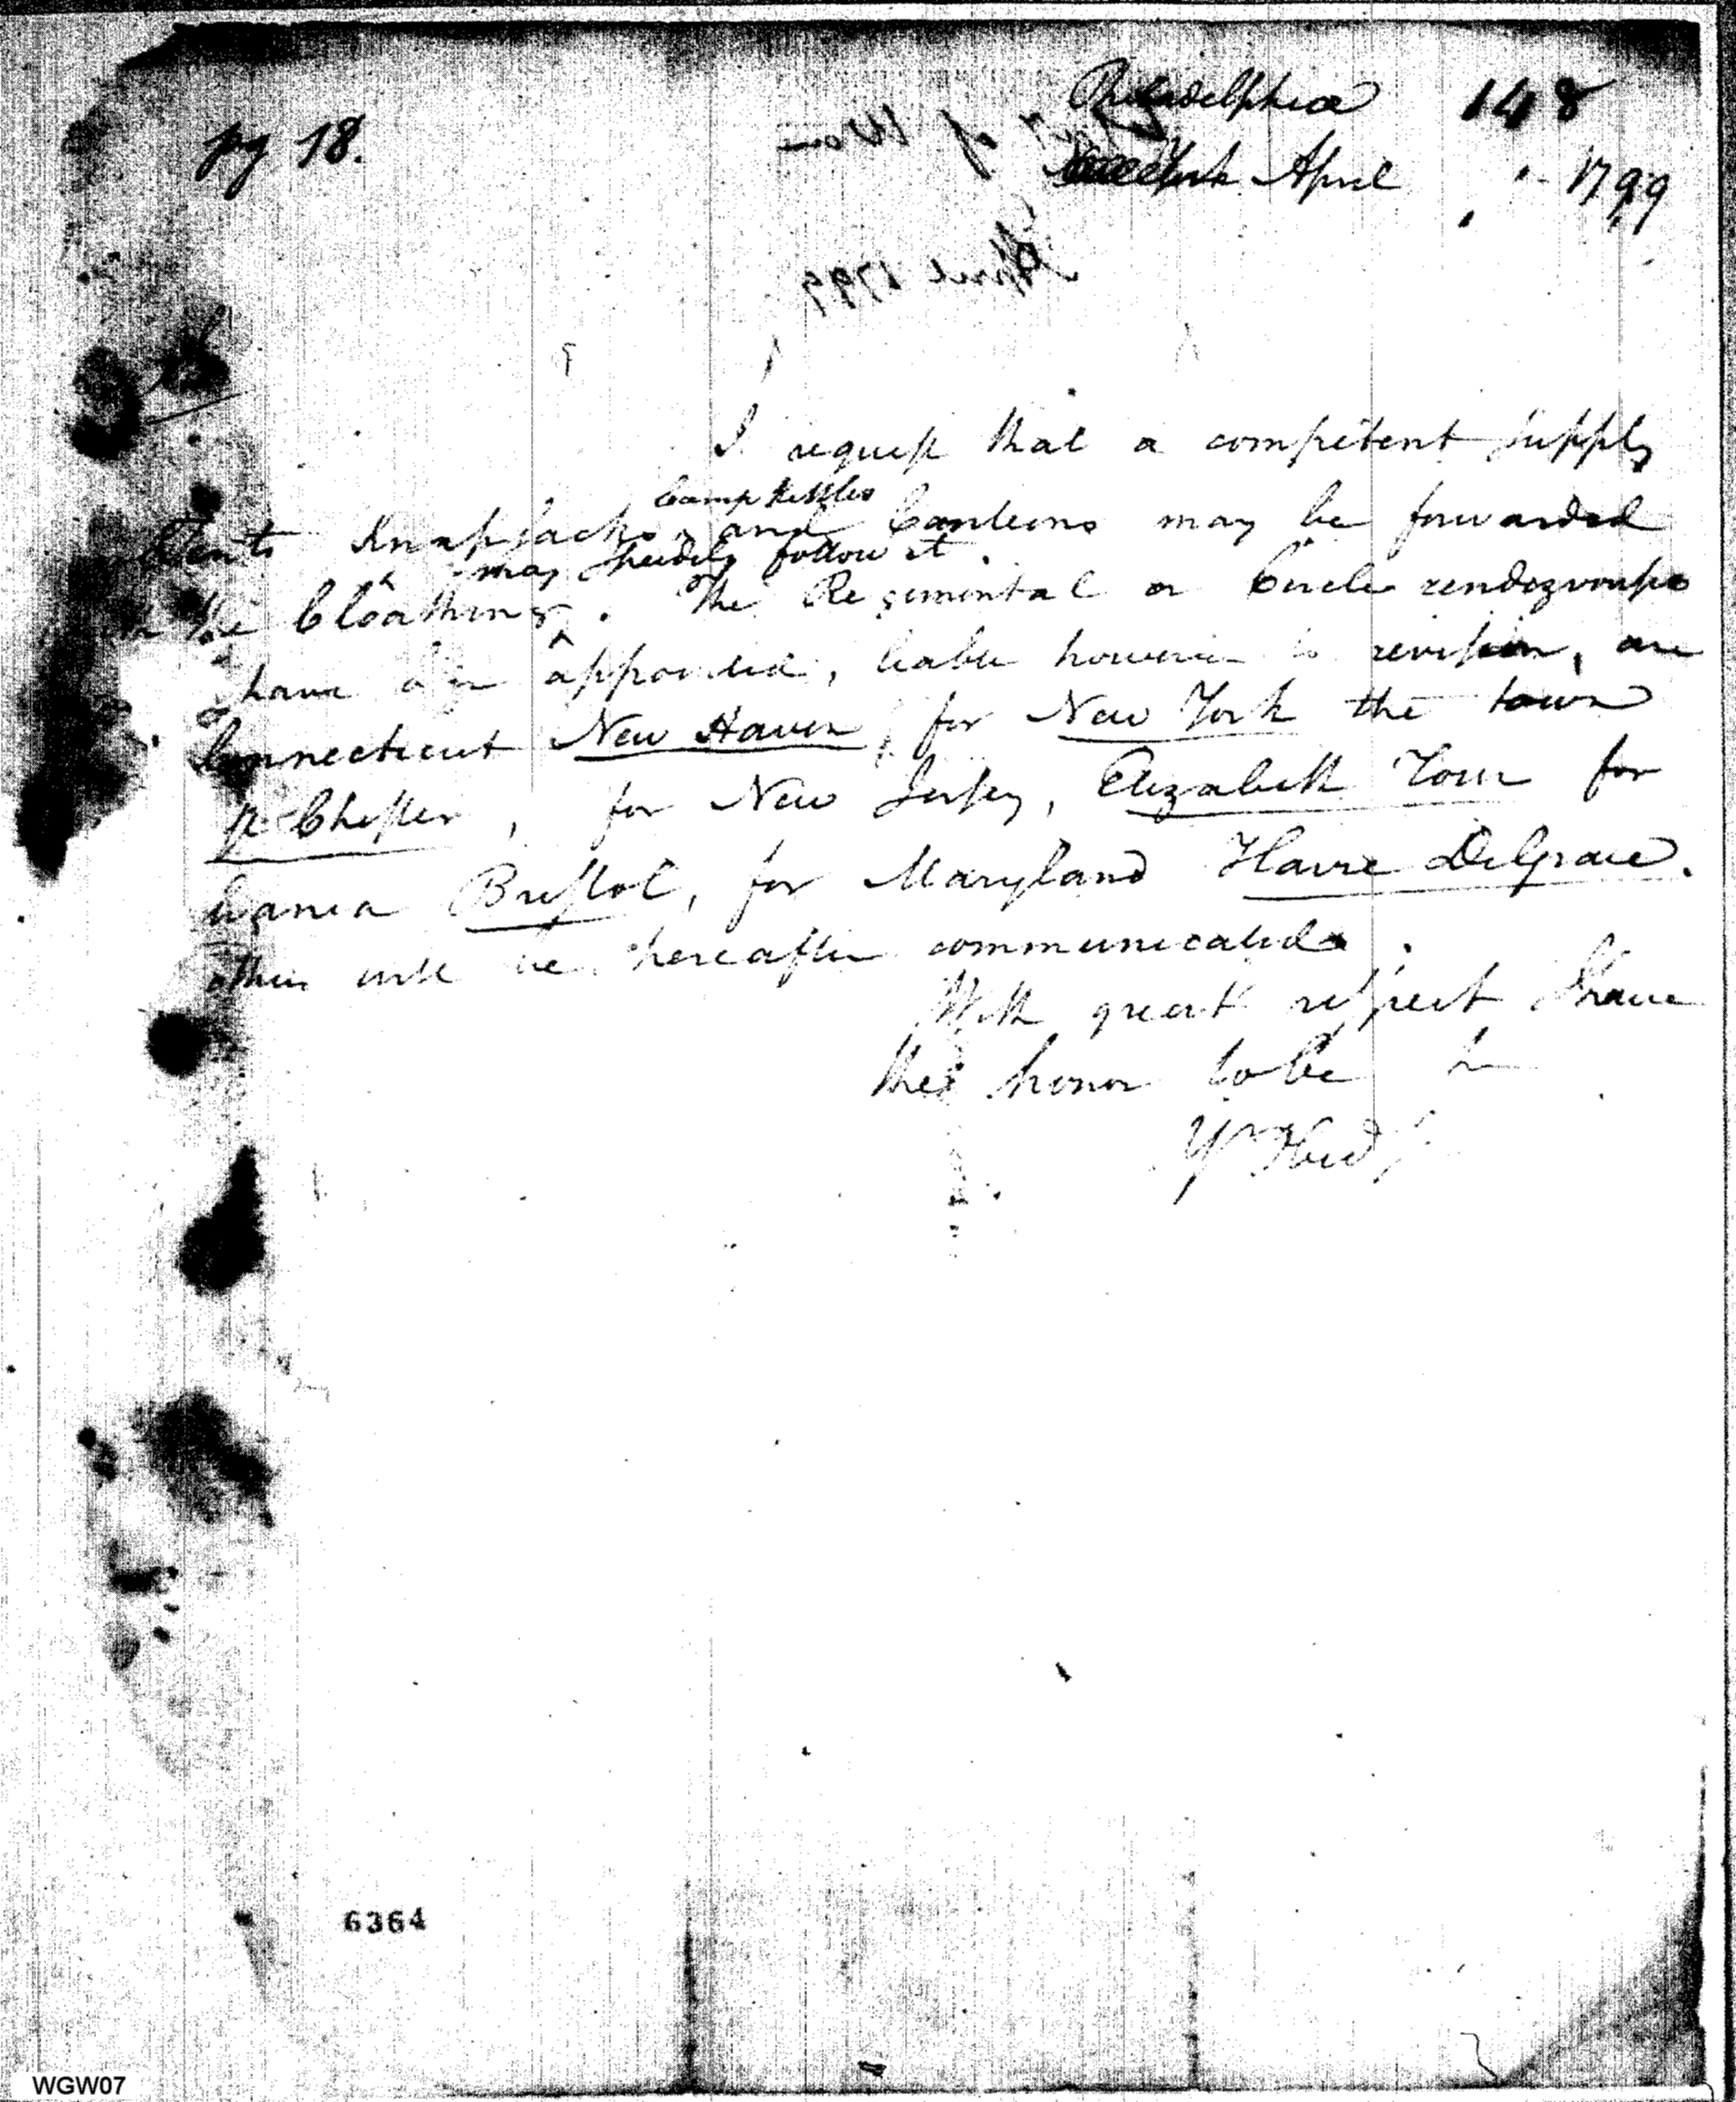 Philadelphia 148
pg 18. April 1799
Secy of War
April 1799
I request that a competent supply
Camp Kettles
Tents Knapsacks and Canteens may be forwarded
may speedily follow it
the Cloathing. The Regimental or Circle rendezvouses
have been appointed, liable however to revision, are
Connecticut New Haven, for New York the town
Chester, for New Jersey, Elizabeth Town for
vania Bristol, for Maryland Havre DeGrace.
others will be hereafter communicated.
With great respect I have
the honor to be
Yr Obed
6364
WGW07